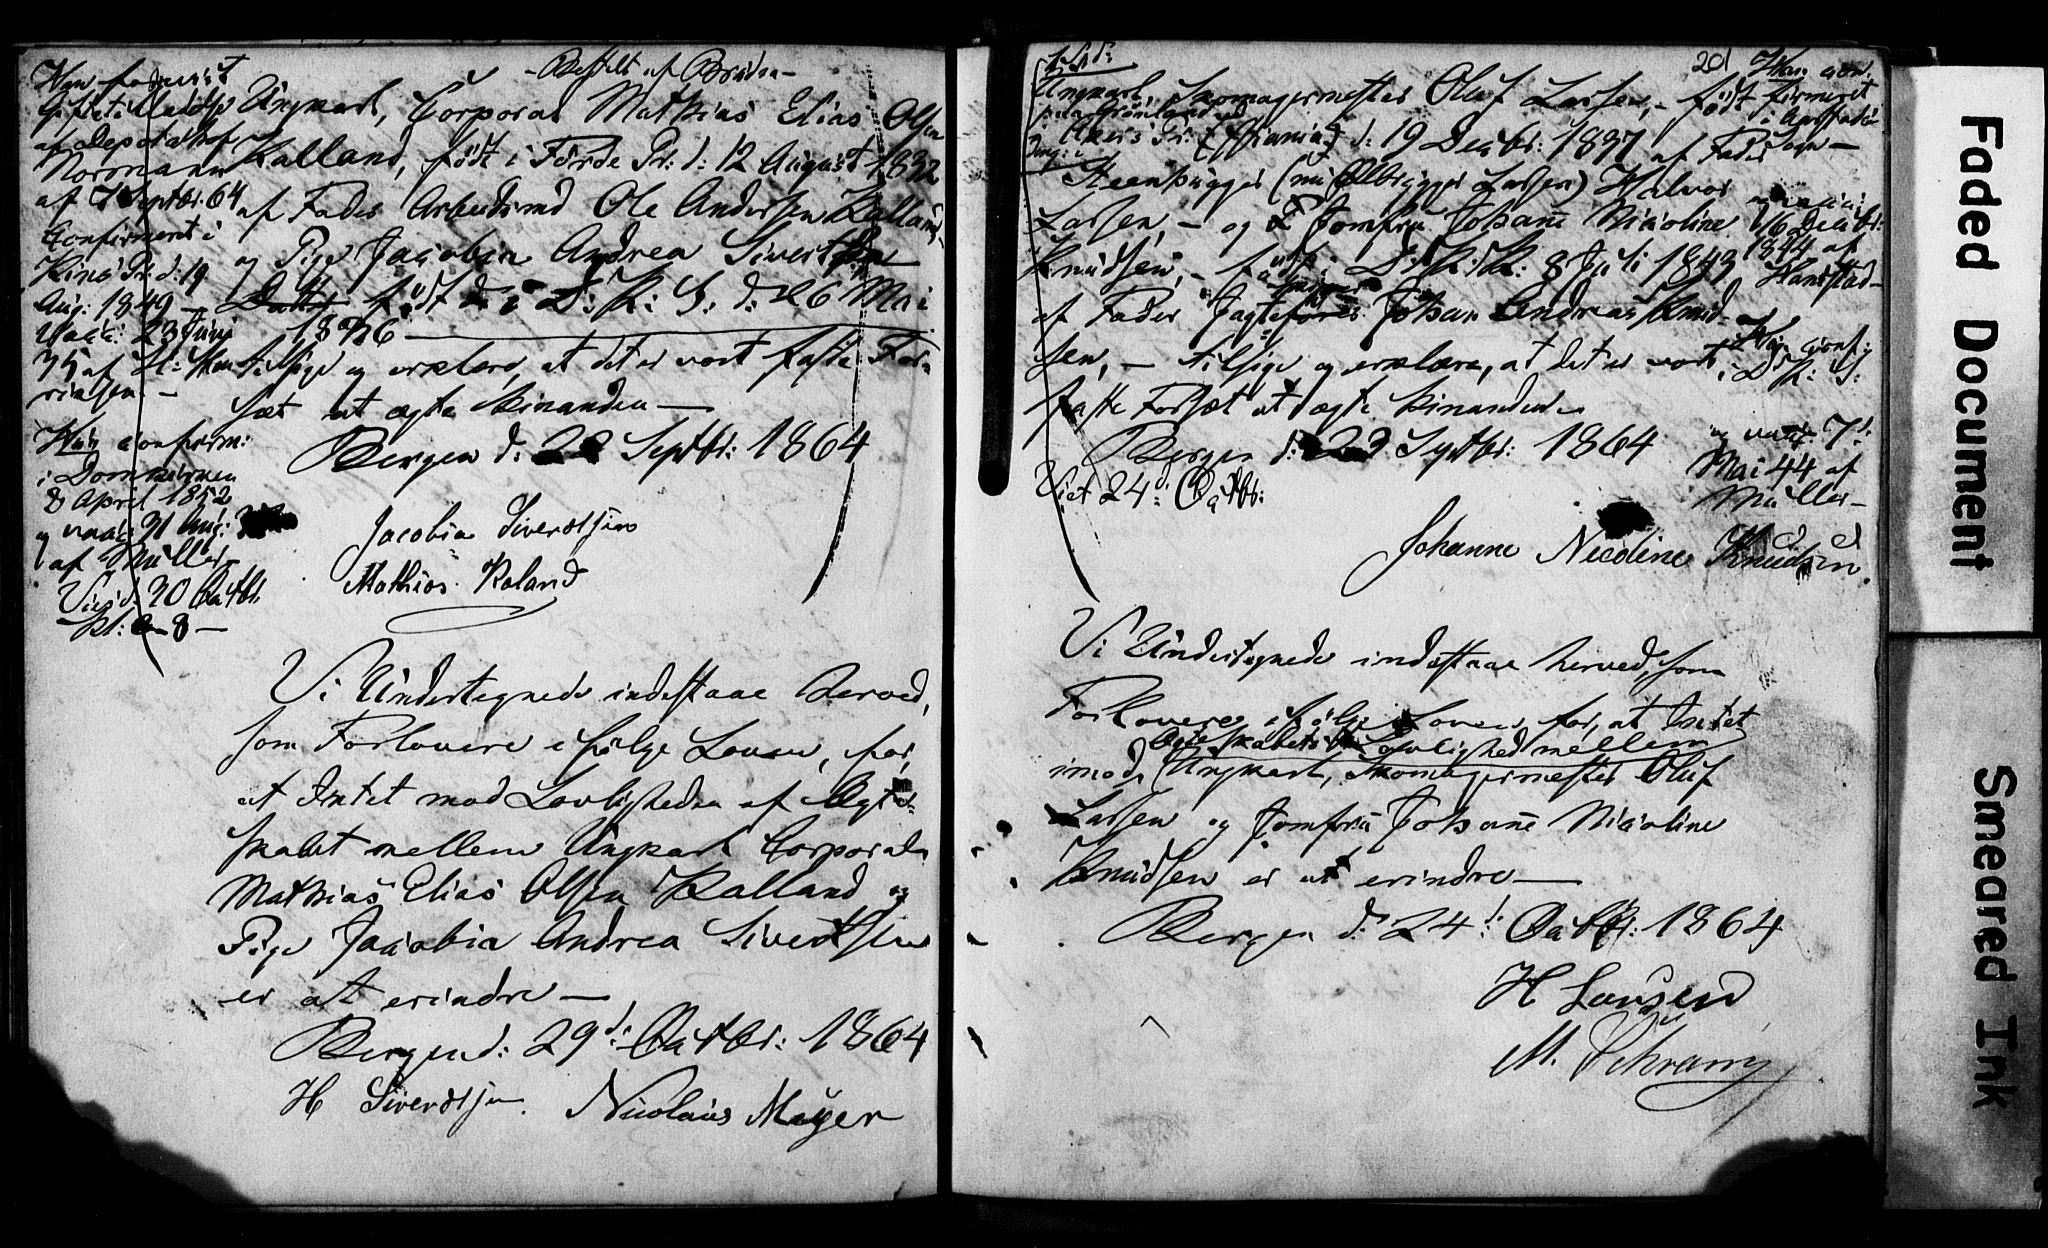 - Bestilt af Bruden -
Han forevist
Giftetilladelse
af Depotchef
Normann
af 7 Septbr: 64
Confirmeret i
Kins Pr: d: 19
Aug: 1849
Vacc: 23 Juni
35 af H:
Hun confirm:
i Domkirken
8 April 1852
og vacc: 31 Aug:
af Müller
Viet d: 30 Octbr.
Kl: 8 —
Ungkarl, Corporal Mathias Elias Olsen
Kalland, født i Førde Pr: d: 12 August 1832
af Fader Arbeidsmd Ole Andersen Kalland,
og Pige Jacobia Andrea Sivertsen
Datter født i D: K: S: d: 26 Mai
1836
tilsige og erklære, at det er vort faste For-
sæt at ægte hinanden —
Bergen d: 22 Septbr: 1864
Jacobia Siverdtsen
Mathias Kaland
Vi Undertegnede indestaae herved,
som Forlovere i følge Loven, for,
at Intet mod Lovligheden af Ægte-
skabet mellem Ungkarl Corporal
Mathias Elias Olsen Kalland og
Pige Jacobia Andrea Sivertsen
er at erindre —
Bergen d: 29d: Octbr: 1864
H Siverdtsen. Nicolaus Meyer
201
Ungkarl, Skomagermester Oluf Larsen, - født
paa Grønland ved
Akers Pr: (Chrania) d: 19 Decbr: 1837 af Fader
Steenhugger (nu Ølbrygger Larsen) Halvor
Larsen, - og Jomfru Johane Nicoline
Knudsen, - født i D: K: S: 8 Juli 1843
af Fader Jagtefører Johan Andreas Knud-
sen, - tilsige og erklære, at det er vort
faste Forsæt at ægte hinanden
Bergen d: 23 Septbr: 1864
Viet 24d: Octbr:
Han con-
firmeret
i
Sogn —
og vacci:
16 Decbr:
1844 af
Hun conf:
i D: K: S:
og vacc 7d:
Mai 44 af
Müller —
Johanne Nicoline Knudsen.
Vi Undertegnede indestaae herved, som
Forlovere i følge Loven, for, at Intet
Ægteskabets Lovlighed mellem
imod Ungkarl, Skomagermester Oluf
Larsen og Jomfru Johane Nicoline
Knudsen er at erindre —
Bergen d: 24d: Octbr: 1864
H Larsen
M. Schram
Faded Document
Smeared Ink